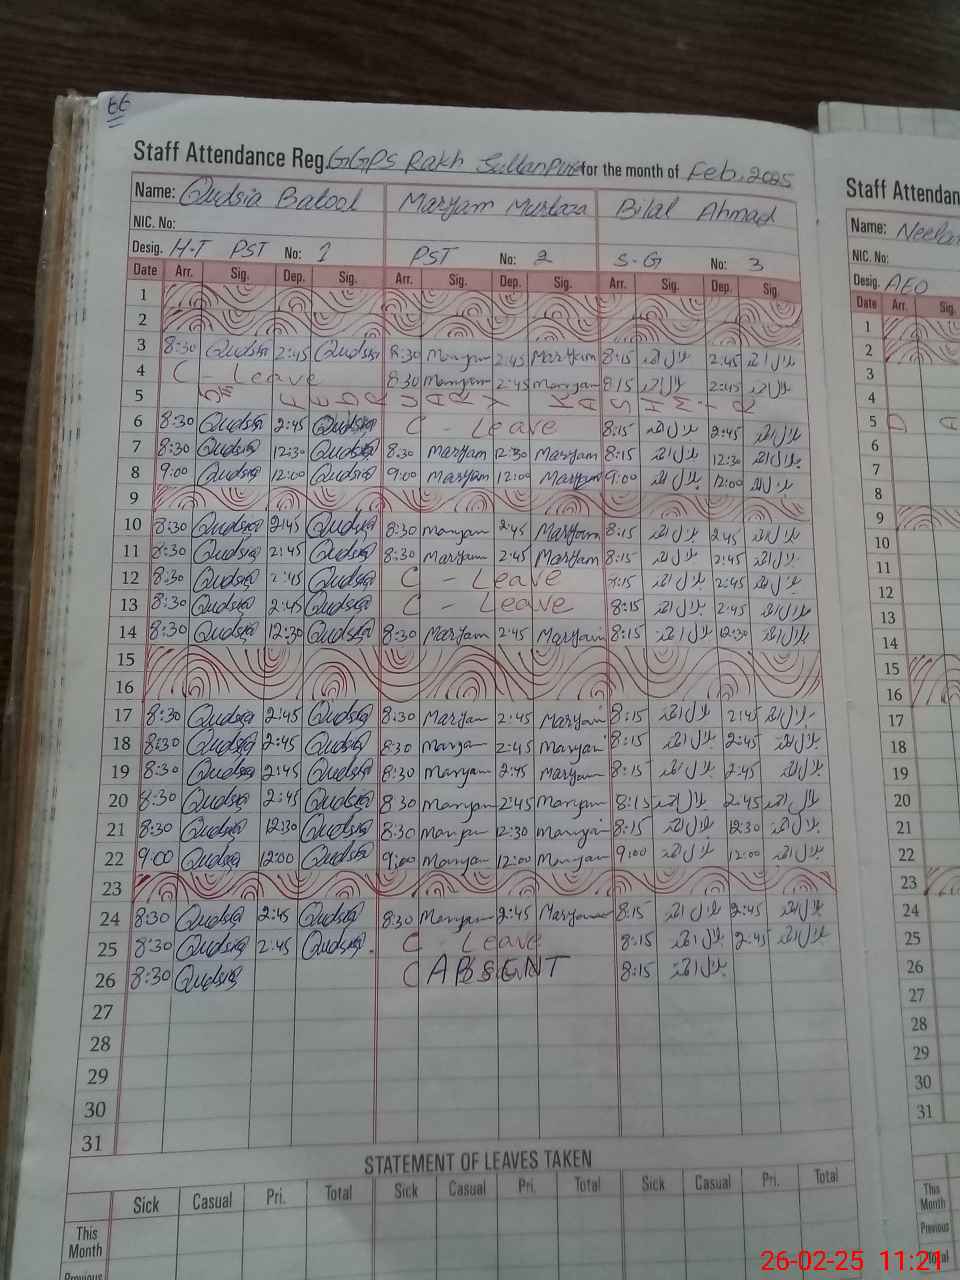 66
Staff Attendance Reg. GGPS Rakh Sultanpur for the month of Feb. 2025
Name: Qudsia Batool Maryam Murtaza Bilal Ahmad
NIC. No:
Desig. H-T PST No: 1 PST No: 2 S-G No: 3
Date Arr. Sig. Dep. Sig. Arr. Sig. Dep. Sig. Arr. Sig. Dep. Sig.
1
2
3 8:30 Qudsia 2:45 Qudsia 8:30 Maryam 2:45 Maryam 8:15 بلال احمد 2:45 بلال احمد
4 C - Leave 8:30 Maryam 2:45 Maryam 8:15 بلال احمد 2:45 بلال احمد
5 5th FEBRUARY KASHMIR
6 8:30 Qudsia 2:45 Qudsia C - Leave 8:15 بلال احمد 2:45 بلال احمد
7 8:30 Qudsia 12:30 Qudsia 8:30 Maryam 12:30 Maryam 8:15 بلال احمد 12:30 بلال احمد
8 9:00 Qudsia 12:00 Qudsia 9:00 Maryam 12:00 Maryam 9:00 بلال احمد 12:00 بلال احمد
9
10 8:30 Qudsia 2:45 Qudsia 8:30 Maryam 2:45 Maryam 8:15 بلال احمد 2:45 بلال احمد
11 8:30 Qudsia 2:45 Qudsia 8:30 Maryam 2:45 Maryam 8:15 بلال احمد 2:45 بلال احمد
12 8:30 Qudsia 2:45 Qudsia C - Leave 8:15 بلال احمد 2:45 بلال احمد
13 8:30 Qudsia 2:45 Qudsia C - Leave 8:15 بلال احمد 2:45 بلال احمد
14 8:30 Qudsia 12:30 Qudsia 8:30 Maryam 2:45 Maryam 8:15 بلال احمد 12:30 بلال احمد
15
16
17 8:30 Qudsia 2:45 Qudsia 8:30 Maryam 2:45 Maryam 8:15 بلال احمد 2:45 بلال احمد
18 8:30 Qudsia 2:45 Qudsia 8:30 Maryam 2:45 Maryam 8:15 بلال احمد 2:45 بلال احمد
19 8:30 Qudsia 2:45 Qudsia 8:30 Maryam 2:45 Maryam 8:15 بلال احمد 2:45 بلال احمد
20 8:30 Qudsia 2:45 Qudsia 8:30 Maryam 2:45 Maryam 8:15 بلال احمد 2:45 بلال احمد
21 8:30 Qudsia 12:30 Qudsia 8:30 Maryam 12:30 Maryam 8:15 بلال احمد 12:30 بلال احمد
22 9:00 Qudsia 12:00 Qudsia 9:00 Maryam 12:00 Maryam 9:00 بلال احمد 12:00 بلال احمد
23
24 8:30 Qudsia 2:45 Qudsia 8:30 Maryam 2:45 Maryam 8:15 بلال احمد 2:45 بلال احمد
25 8:30 Qudsia 2:45 Qudsia. C - Leave 8:15 بلال احمد 2:45 بلال احمد
26 8:30 Qudsia C ABSENT 8:15 بلال احمد
27
28
29
30
31
STATEMENT OF LEAVES TAKEN
Sick Casual Pri. Total Sick Casual Pri. Total Sick Casual Pri. Total
This Month
Previous
Staff Attendan
Name: Neela
NIC. No:
Desig. AEO
Date Arr. Sig.
1
2
3
4
5 D A
6
7
8
9
10
11
12
13
14
15
16
17
18
19
20
21
22
23
24
25
26
27
28
29
30
31
This Month
Previous
Total
26-02-25 11:21